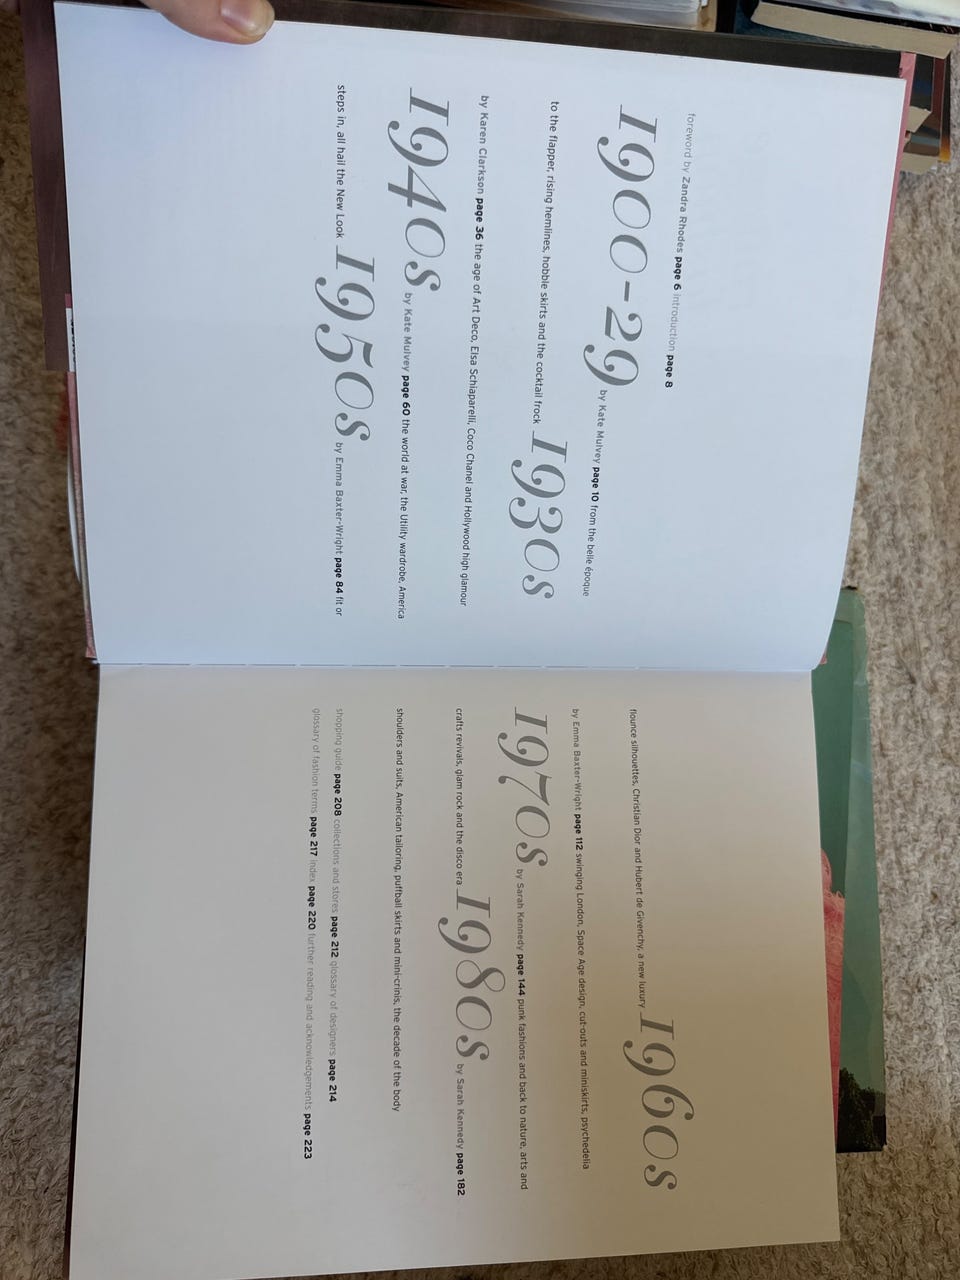 foreword by Zandra Rhodes page 6 introduction page 8
1900-29 by Kate Mulvey page 10 from the belle époque
to the flapper, rising hemlines, hobble skirts and the cocktail frock 1930s
by Karen Clarkson page 36 the age of Art Deco, Elsa Schiaparelli, Coco Chanel and Hollywood high glamour
1940s by Kate Mulvey page 60 the world at war, the Utility wardrobe, America
steps in, all hail the New Look 1950s by Emma Baxter-Wright page 84 fit or
flounce silhouettes, Christian Dior and Hubert de Givenchy, a new luxury 1960s
by Emma Baxter-Wright page 112 swinging London, Space Age design, cut-outs and miniskirts, psychedelia
1970s by Sarah Kennedy page 144 punk fashions and back to nature, arts and
crafts revivals, glam rock and the disco era 1980s by Sarah Kennedy page 182
shoulders and suits, American tailoring, puffball skirts and mini-crinis, the decade of the body
shopping guide page 208 collections and stores page 212 glossary of designers page 214
glossary of fashion terms page 217 index page 220 further reading and acknowledgements page 223